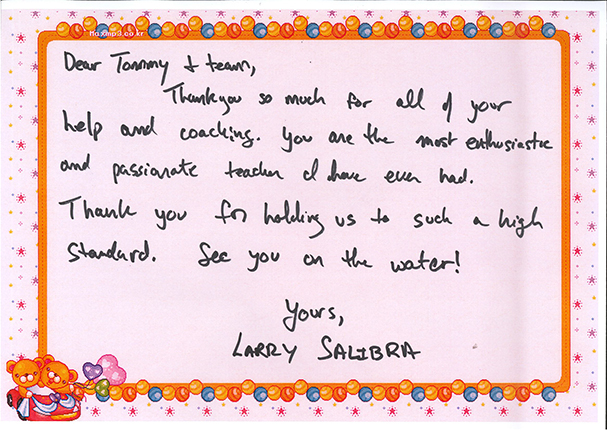 maxmp3.co.kr
Dear Tommy & team,
Thankyou so much for all of your
help and coaching. You are the most enthusiastic
and passionate teacher I have ever had.
Thank you for holding us to such a high
standard. See you on the water!
Yours,
LARRY SALIBRA